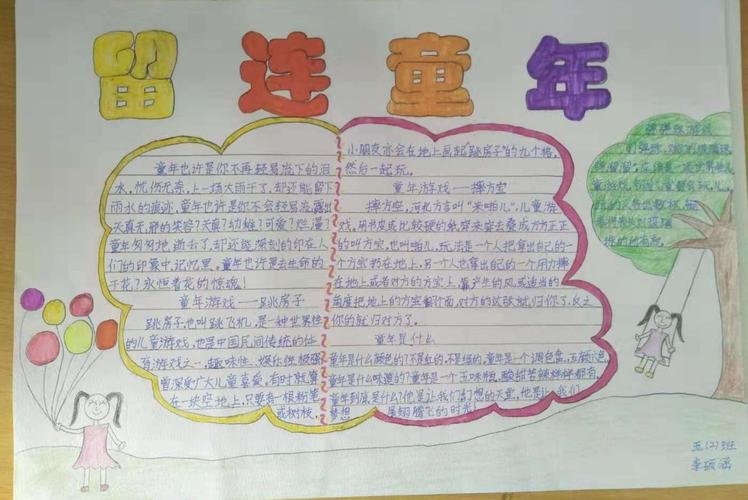 留连童年
童年也许是你不再轻易流下的泪
水,忧伤无奈,上一场大雨干了,却还能留下
雨水的痕迹,童年也许是你不会轻易露出
天真无邪的笑容?天真?幼雅?可爱?烂漫?
童年匆匆地逝去了,却还能深刻的印在人
们的印象中,记忆里。童年也许是去生命的
干花?永恒着花的惊魂!
童年游戏——跳房子
跳房子,也叫跳飞机,是一种世界性
的儿童游戏,也是中国民间传统的体
育游戏之一,趣味性、娱乐性极强
曾深受广大儿童喜爱,有时就算
在一块空地上,只要有一根粉笔
或树枝,
小朋友亦会在地上画起"跳房子"的九个格,
然后一起玩。
童年游戏——摔方宝
摔方宝,河北方言叫"来啪儿",儿童游
戏,用书皮或比较硬的纸穿来穿去叠成方方正正
的叫方宝,也叫啪儿,玩法是一个人把拿出自己的一
个方宝扔在地上,另一个人也拿出自己的一个用力摔
在地上或者对方的方宝上,靠产生的风或适当的
角度把地上的方宝翻个面,对方的这张就归你了,反之
你的就归对方了。
童年是什么
童年是什么颜色的?不是红的,不是绿的,童年是一个调色盘,五颜六色,
童年是什么味道的?童年是一个五味瓶,酸甜苦辣样样都有,
童年到底是什么?他是让我们幻想的天堂,他是让我们
梦想 展翅腾飞的时光!
弹弹珠游戏
五(2)班
李硕涵